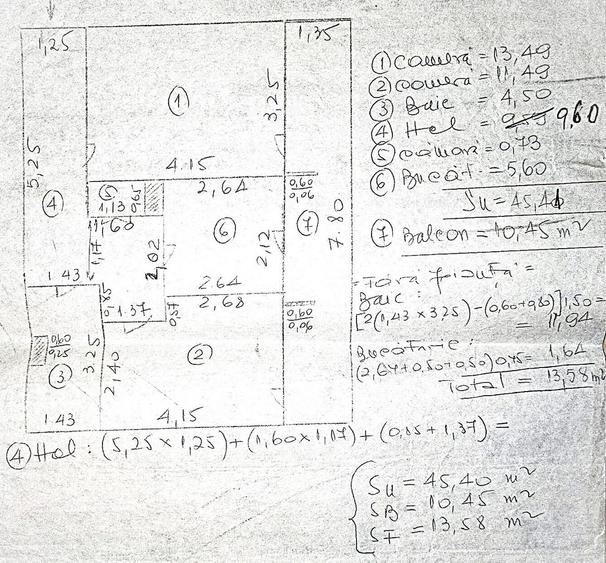 1,25
1,35
① Cameră = 13,49
② camera = 11,49
③ Baie = 4,50
④ Hol = 9,60
⑤ cămară = 0,73
⑥ Bucăt. = 5,60
Su = 45,41
⑦ Balcon = 10,45 m²
①
3,25
5,25
④
4.15
⑤
1,13
0,65
2,64
0,60
0,06
⑦
7.80
1,60
1,17
2,02
⑥
2,12
1.43
2.64
2,68
1.37
0,57
0,60
0,06
0,60
0,25
③
3.25
2,40
②
1.43
4,15
= Fara faianță =
Baie:
[2(1,43 × 3,25) - (0,60+0,80)]1,50 =
= 11,94
Bucătarie:
(2,64+0,50+0,50)0,45 = 1,64
Total = 13,58 m²
④ Hol : (5,25 × 1,25) + (1,60 × 1,17) + (0,85 + 1,37) =
Su = 45,40 m²
SB = 10,45 m²
SF = 13,58 m²